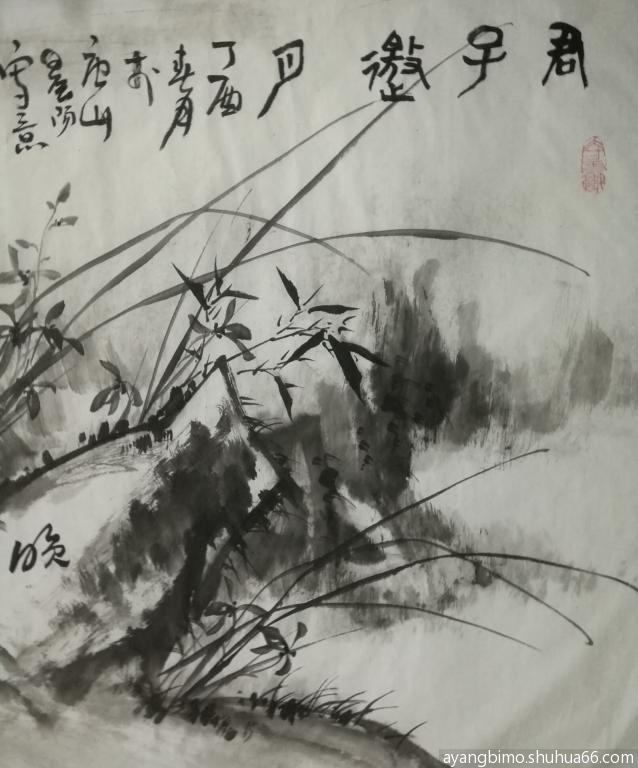 君子邀月
丁酉
春月
唐山
写意
ayangbimo.shuhua66.com